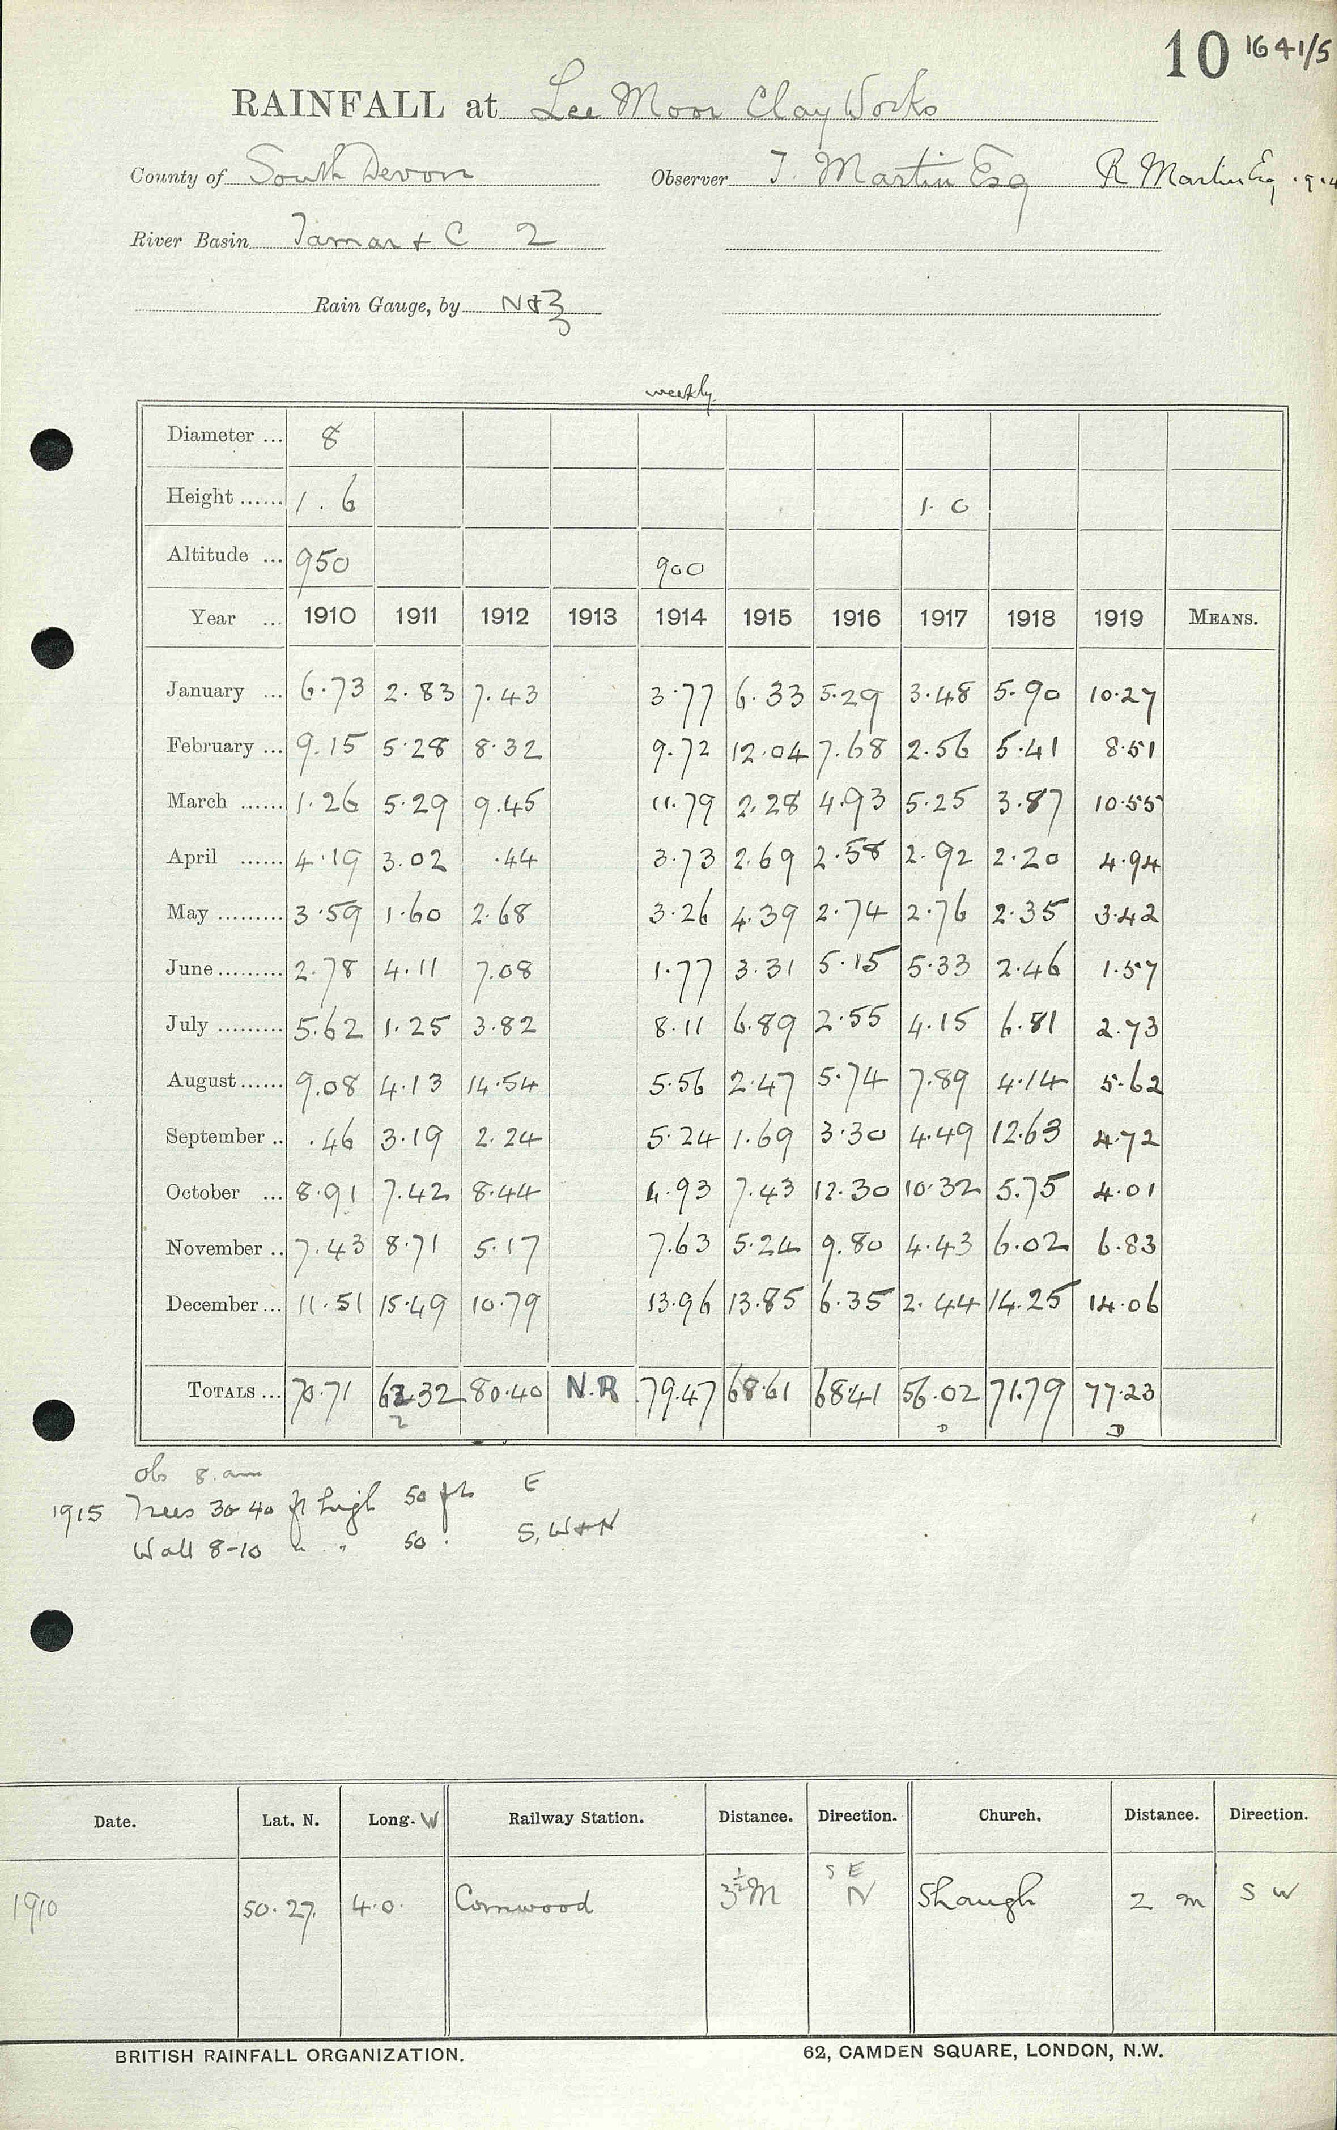 10 1641/5
RAINFALL at Lee Moor Clay Works
County of South Devon Observer T. Martin Esq R Martin Esq
River Basin Tamar + C 2
Rain Gauge, by N+Z
weekly
Diameter ... 8
Height ...... 1.6 1.0
Altitude ... 950 900
Year ... 1910 1911 1912 1913 1914 1915 1916 1917 1918 1919 MEANS.
January ... 6.73 2.83 7.43 3.77 6.33 5.29 3.48 5.90 10.27
February ... 9.15 5.28 8.32 9.72 12.04 7.68 2.56 5.41 8.51
March ...... 1.26 5.29 9.45 11.79 2.28 4.93 5.25 3.87 10.55
April ...... 4.19 3.02 .44 3.73 2.69 2.58 2.92 2.20 4.94
May ......... 3.59 1.60 2.68 3.26 4.39 2.74 2.76 2.35 3.42
June ......... 2.78 4.11 7.08 1.77 3.31 5.15 5.33 2.46 1.57
July ......... 5.62 1.25 3.82 8.11 6.89 2.55 4.15 6.81 2.73
August ...... 9.08 4.13 14.54 5.56 2.47 5.74 7.89 4.14 5.62
September .. .46 3.19 2.24 5.24 1.69 3.30 4.49 12.63 4.72
October ... 8.91 7.42 8.44 4.93 7.43 12.30 10.32 5.75 4.01
November .. 7.43 8.71 5.17 7.63 5.24 9.80 4.43 6.02 6.83
December ... 11.51 15.49 10.79 13.96 13.85 6.35 2.44 14.25 14.06
TOTALS ... 70.71 62.32 80.40 N.R 79.47 68.61 68.41 56.02 71.79 77.23
2 D D
Obs 8. am
1915 Trees 30-40 ft high 50 ft E
Wall 8-10 " " 50 . S, W+N
Date. Lat. N. Long. W Railway Station. Distance. Direction. Church. Distance. Direction.
1910 50.27. 4.0. Cornwood 3½ M S E N Shaugh 2 m S W
BRITISH RAINFALL ORGANIZATION. 62, CAMDEN SQUARE, LONDON, N.W.